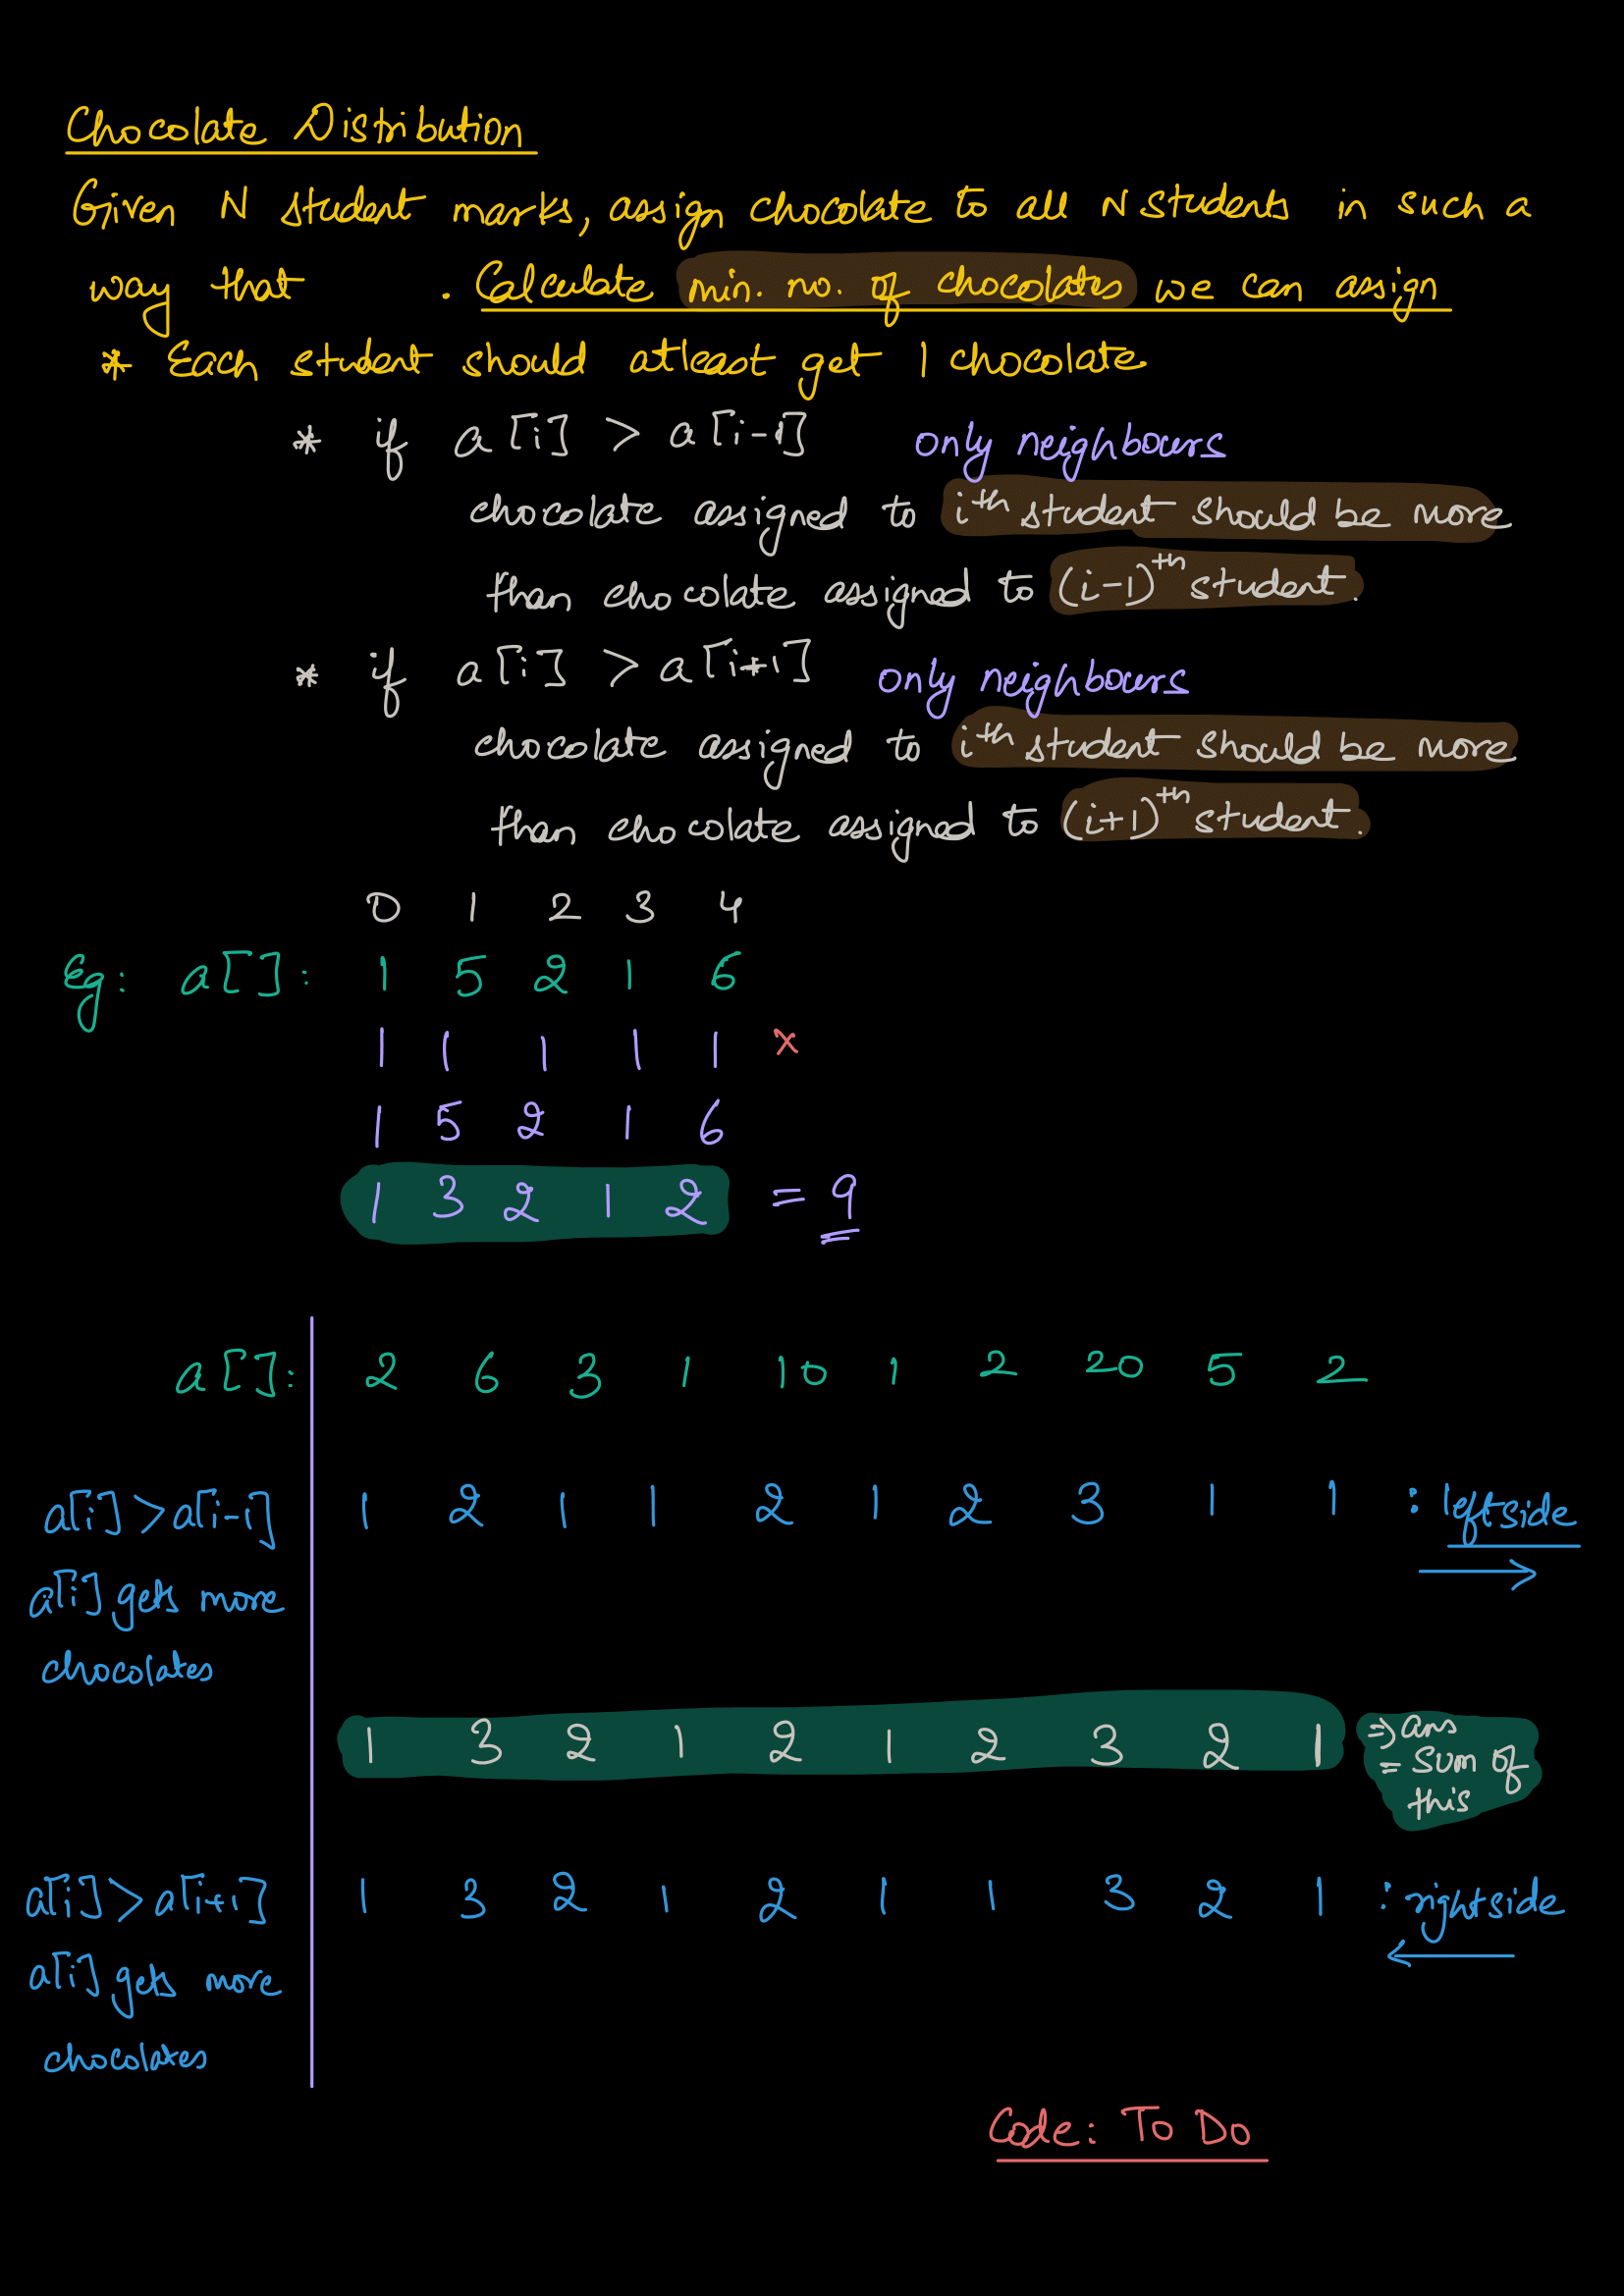 Chocolate Distribution
Given N student marks, assign chocolate to all N students in such a
way that . Calculate min. no. of chocolates we can assign
* Each student should atleast get 1 chocolate.
* if a[i] > a[i-1] only neighbours
chocolate assigned to ith student should be more
than chocolate assigned to (i-1)th student.
* if a[i] > a[i+1] only neighbours
chocolate assigned to ith student should be more
than chocolate assigned to (i+1)th student.
0 1 2 3 4
Eg: a[]: 1 5 2 1 6
1 1 1 1 1 x
1 5 2 1 6
1 3 2 1 2 = 9
a[]: 2 6 3 1 10 1 2 20 5 2
a[i]>a[i-1] 1 2 1 1 2 1 2 3 1 1 : leftside
a[i] gets more →
chocolates
1 3 2 1 2 1 2 3 2 1 => ans
= sum of
this
a[i]>a[i+1] 1 3 2 1 2 1 1 3 2 1 : rightside
a[i] gets more ←
chocolates
Code: To Do